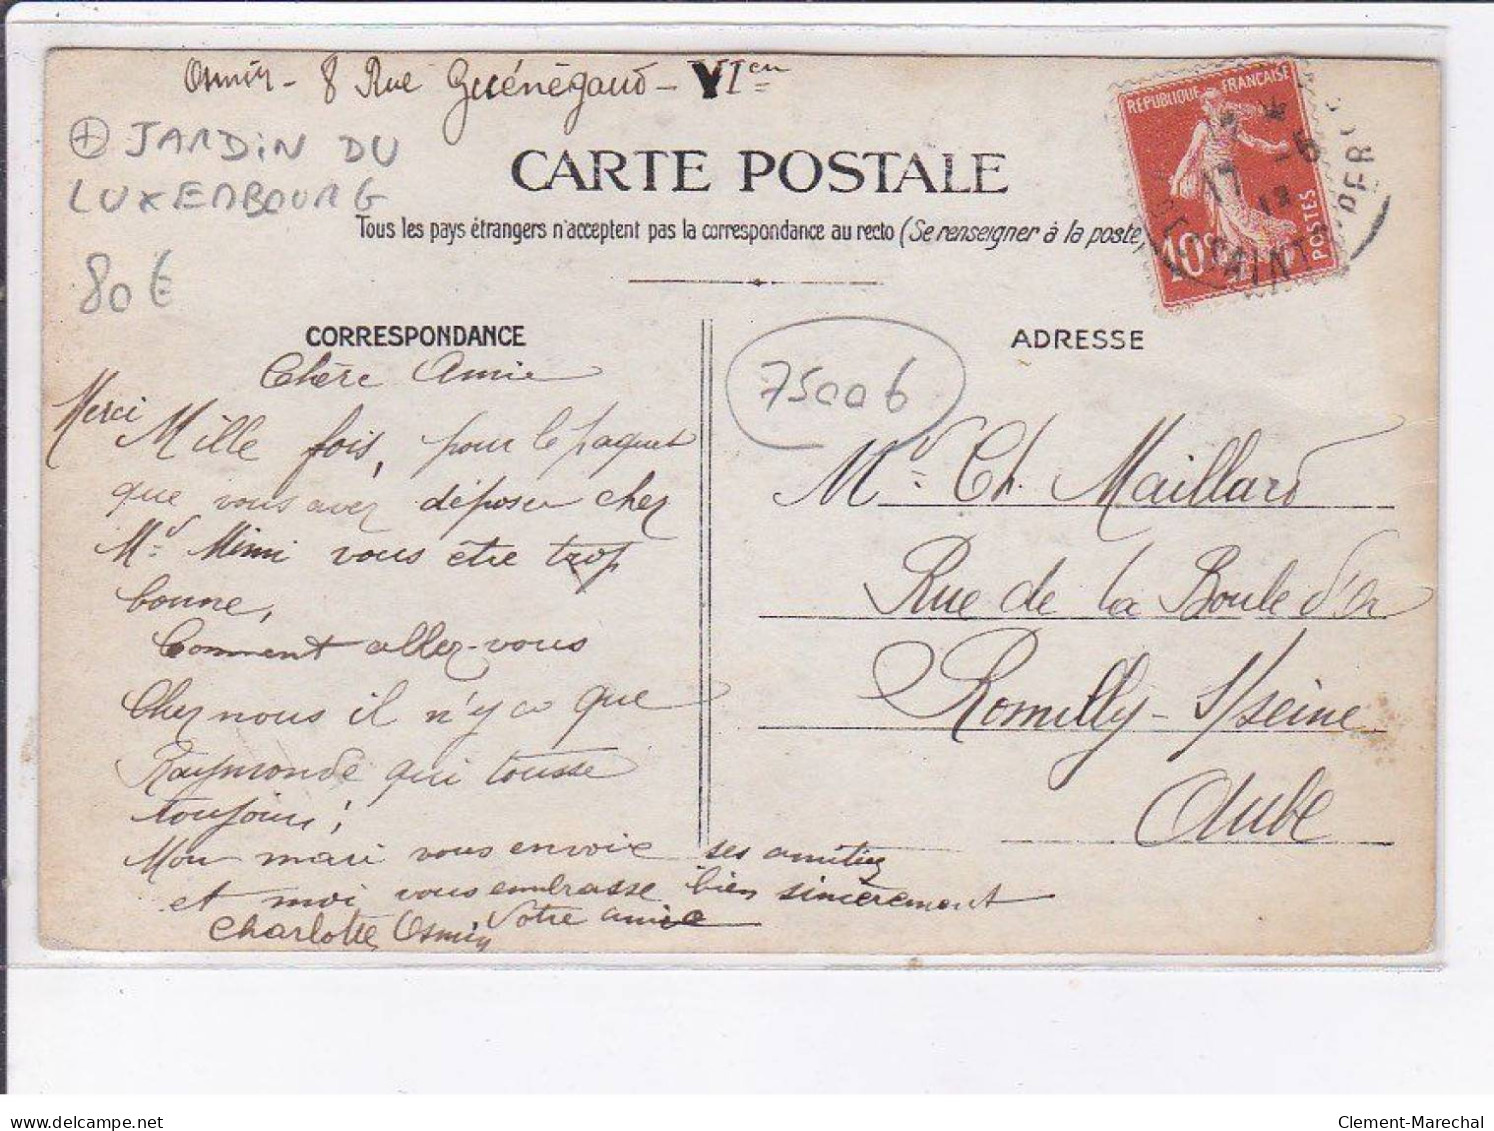 Osmin - 8 Rue Guénégaud - VIem
JARDIN DU
LUXEMBOURG
80€
CARTE POSTALE
Tous les pays étrangers n'acceptent pas la correspondance au recto (Se renseigner à la poste)
REPUBLIQUE FRANÇAISE
10c
POSTES
17
CORRESPONDANCE
ADRESSE
75006
Chère Amie
Merci Mille fois, pour le paquet
que vous avez déposer chez
Md Mimi vous être trop
bonne,
Comment allez-vous
Chez nous il n'y a que
Raymonde qui tousse
toujours;
Mon mari vous envoie ses amitiés
et moi vous embrasse bien sincèrement
Votre amie
Charlotte Osmin
Md Ch. Maillard
Rue de la Boule d'Or
Romilly-S/seine
Aube
delcampe.net
Clement-Marechal